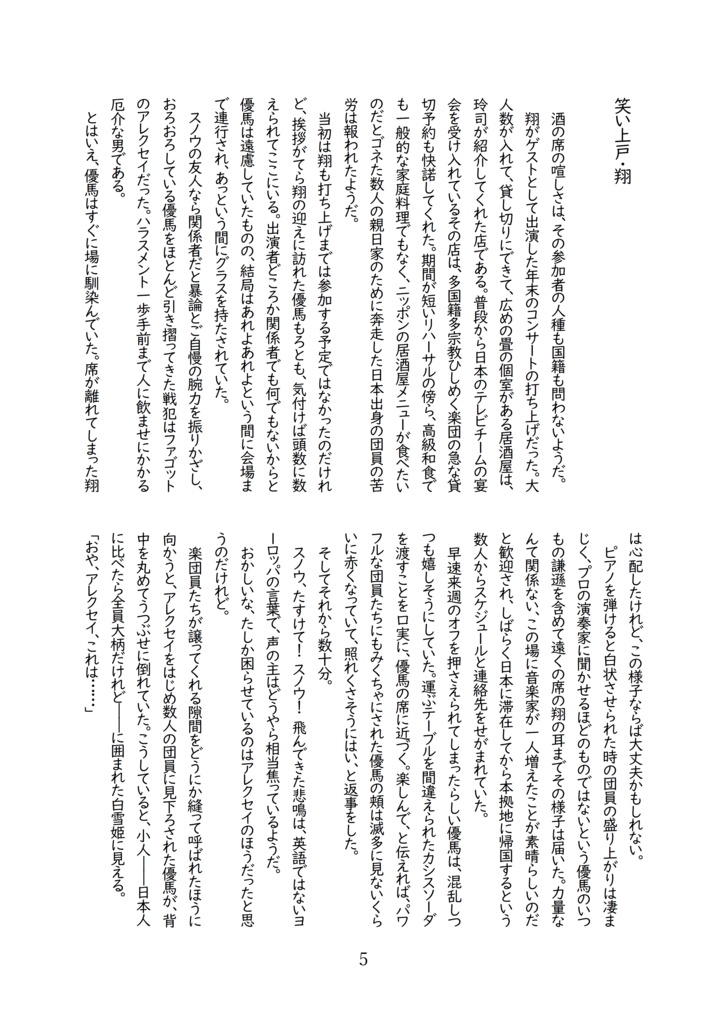 笑い上戸・翔
　酒の席の喧しさは、その参加者の人種も国籍も問わないようだ。
　翔がゲストとして出演した年末のコンサートの打ち上げだった。大
人数が入れて、貸し切りにできて、広めの畳の個室がある居酒屋は、
玲司が紹介してくれた店である。普段から日本のテレビチームの宴
会を受け入れているその店は、多国籍多宗教ひしめく楽団の急な貸
切予約も快諾してくれた。期間が短いリハーサルの傍ら、高級和食で
も一般的な家庭料理でもなく、ニッポンの居酒屋メニューが食べたい
のだとゴネた数人の親日家のために奔走した日本出身の団員の苦
労は報われたようだ。
　当初は翔も打ち上げまでは参加する予定ではなかったのだけれ
ど、挨拶がてら翔の迎えに訪れた優馬もろとも、気付けば頭数に数
えられてここにいる。出演者どころか関係者でも何でもないからと
優馬は遠慮していたものの、結局はあれよあれよという間に会場ま
で連行され、あっという間にグラスを持たされていた。
　スノウの友人なら関係者だと暴論とご自慢の腕力を振りかざし、
おろおろしている優馬をほとんど引き摺ってきた戦犯はファゴット
のアレクセイだった。ハラスメント一歩手前まで人に飲ませにかかる
厄介な男である。
　とはいえ、優馬はすぐに場に馴染んでいた。席が離れてしまった翔
は心配したけれど、この様子ならば大丈夫かもしれない。
　ピアノを弾けると白状させられた時の団員の盛り上がりは凄ま
じく、プロの演奏家に聞かせるほどのものではないという優馬のいつ
もの謙遜を含めて遠くの席の翔の耳までその様子は届いた。力量な
んて関係ない、この場に音楽家が一人増えたことが素晴らしいのだ
と歓迎され、しばらく日本に滞在してから本拠地に帰国するという
数人からスケジュールと連絡先をせがまれていた。
　早速来週のオフを押さえられてしまったらしい優馬は、混乱しつ
つも嬉しそうにしていた。運ぶテーブルを間違えられたカシスソーダ
を渡すことを口実に、優馬の席に近づく。楽しんで、と伝えれば、パワ
フルな団員たちにもみくちゃにされた優馬の頬は滅多に見ないくら
いに赤くなっていて、照れくさそうにはい、と返事をした。
　そしてそれから数十分。
　スノウ、たすけて！　スノウ！　飛んできた悲鳴は、英語ではないヨ
ーロッパの言葉で、声の主はどうやら相当焦っているようだ。
　おかしいな、たしか困らせているのはアレクセイのほうだったと思
うのだけれど。
　楽団員たちが譲ってくれる隙間をどうにか縫って呼ばれたほうに
向かうと、アレクセイをはじめ数人の団員に見下ろされた優馬が、背
中を丸めてうつぶせに倒れていた。こうしていると、小人――日本人
に比べたら全員大柄だけれど――に囲まれた白雪姫に見える。
「おや、アレクセイ、これは……」
5